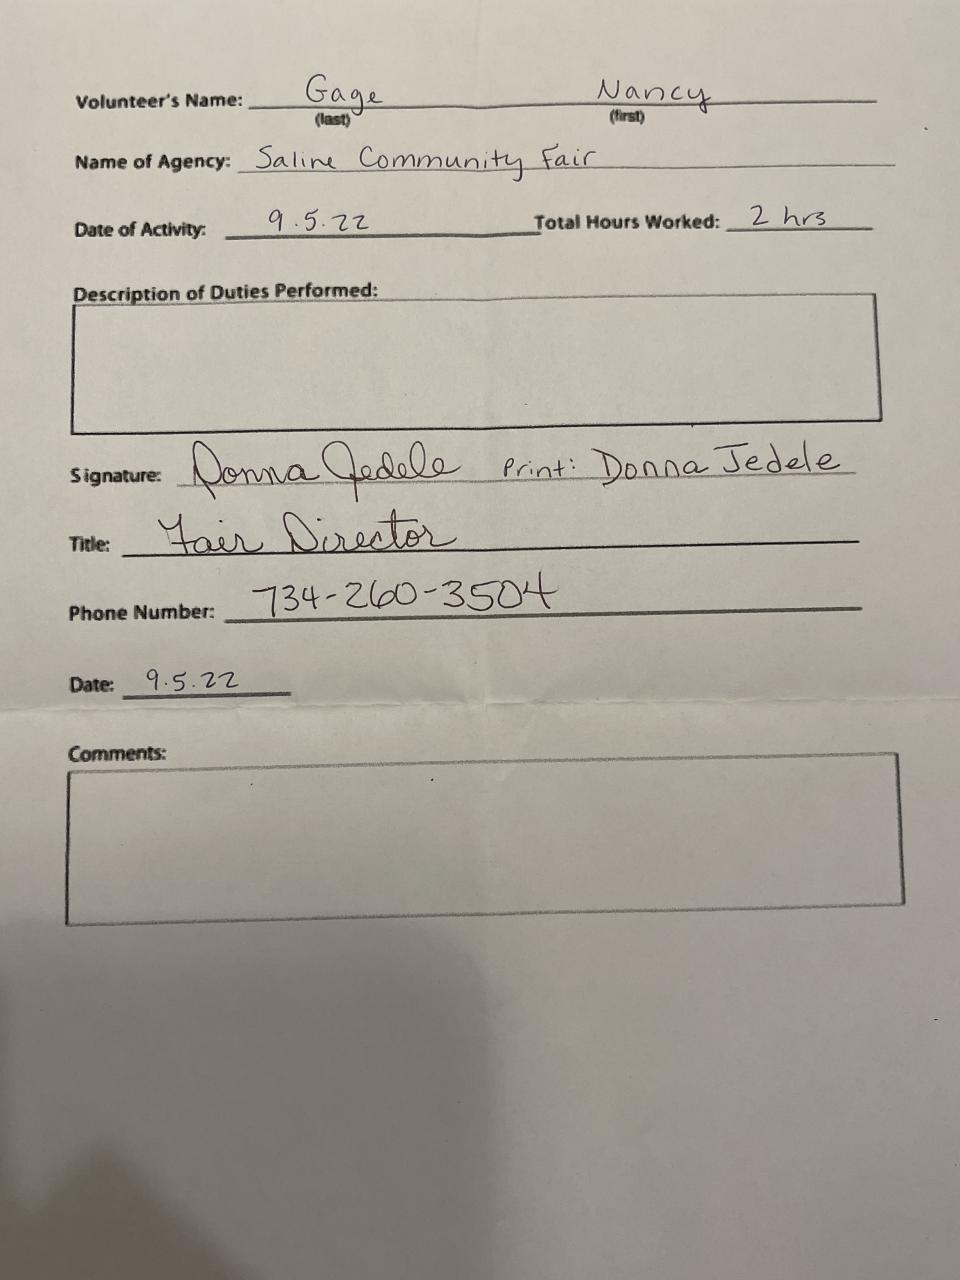 Volunteer's Name: Gage Nancy
(last) (first)
Name of Agency: Saline Community Fair
Date of Activity: 9.5.22 Total Hours Worked: 2 hrs
Description of Duties Performed:
Signature: Donna Jedele Print: Donna Jedele
Title: Fair Director
Phone Number: 734-260-3504
Date: 9.5.22
Comments: